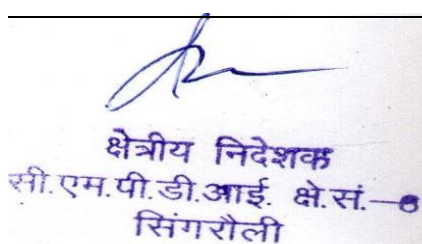 क्षेत्रीय निदेशक
सी.एम.पी.डी.आई. क्षे.सं.—
सिंगरौली